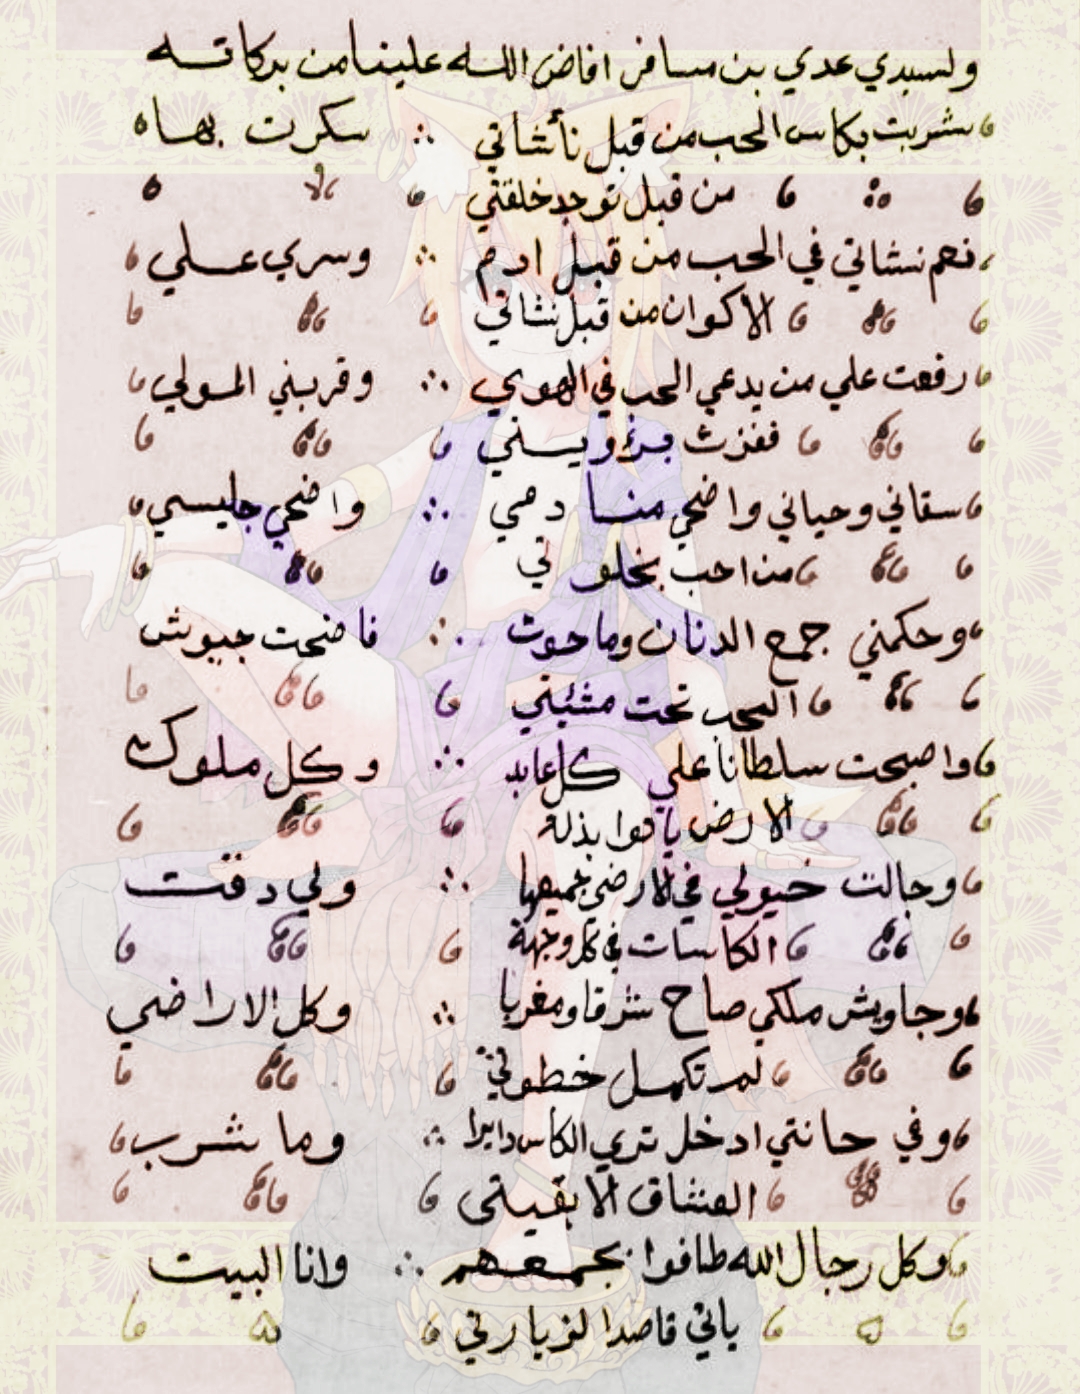 ولسيدي عدي بن مسافر افاض الله علينا من بركاته
شربت بكاس الحب من قبل نأشاتي ∴ سكرت بها
من قبل توجد خلقتي
نعم نشاتي في الحب من قبل ادم ∴ وسري علي
الاكوان من قبل نشاتي
رفعت علي من يدعي الحب في الهوي ∴ وقربني المولي
ففزت برويتي
سقاني وحياني واضحي منادمي ∴ واضحي جليسي
من احب بخلوتي
وحكمني جمع الدنان وما حوت ∴ فاضحت جيوش
الحب تحت مشئتي
واصبحت سلطانا علي كل عابد ∴ وكل ملوك
الارض ياتوا بذلة
وجالت خيولي في الارضي جميعها ∴ ولي دقت
الكاسات في كل وجهة
وجاويش ملكي صاح شرقا ومغربا ∴ وكل الاراضي
لم تكمل خطوتي
وفي حانتي ادخل تري الكاس دايرا ∴ وما شرب
العشاق الا بقيتي
وكل رجال الله طافوا بجمعهم ∴ وانا البيت
ياتي قاصدا لزيارتي